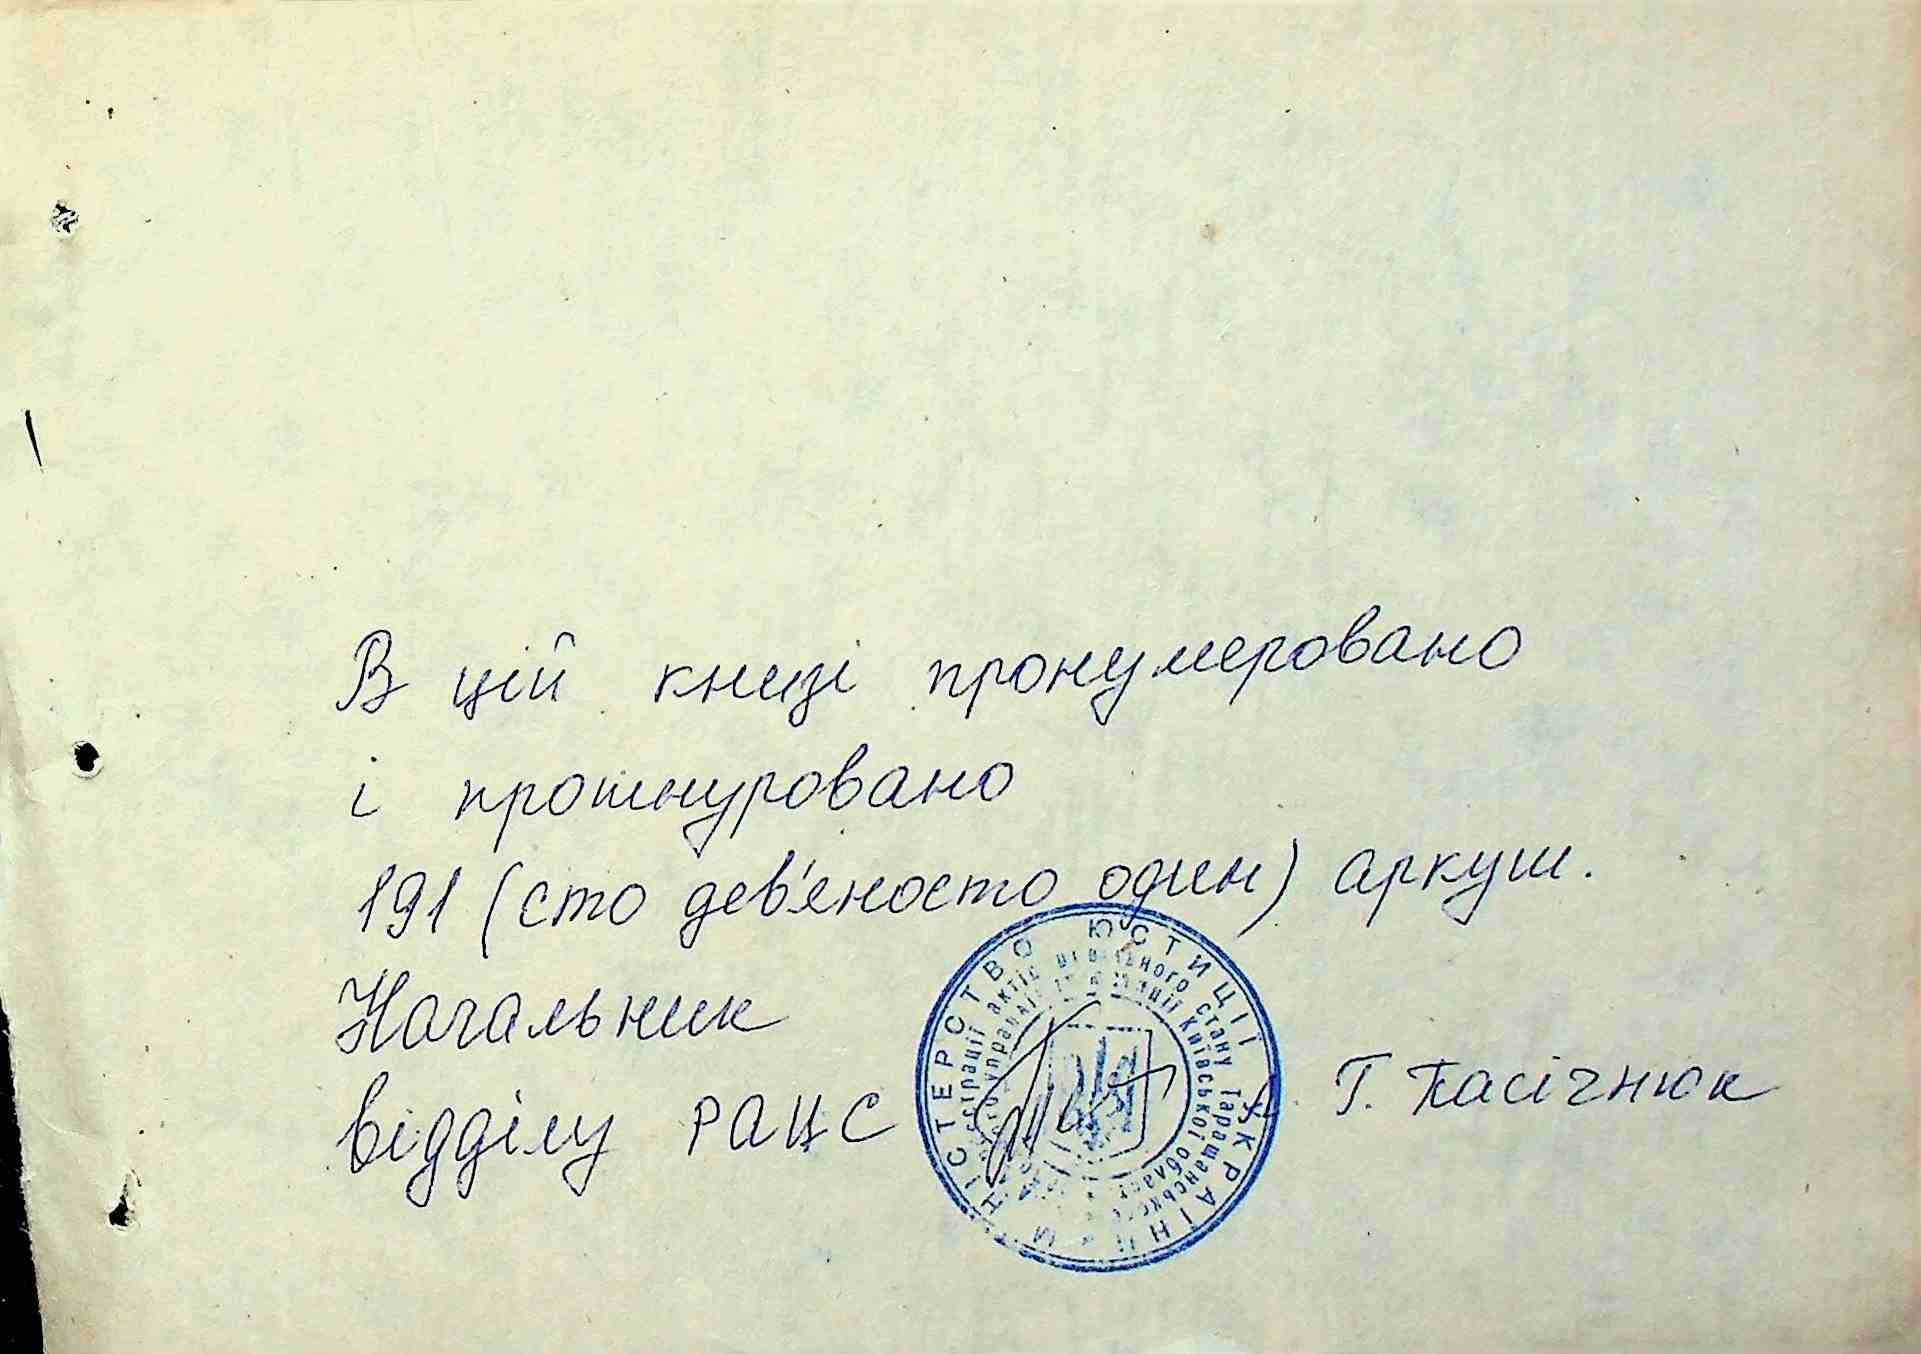 В цій книзі пронумеровано
і прошнуровано
191 (сто дев'яносто один) аркуш.
Начальник
відділу РАЦС Г. Пасічнюк
МІНІСТЕРСТВО ЮСТИЦІЇ УКРАЇНИ
реєстрації актів цивільного стану Таращанського
управління юстиції Київської області